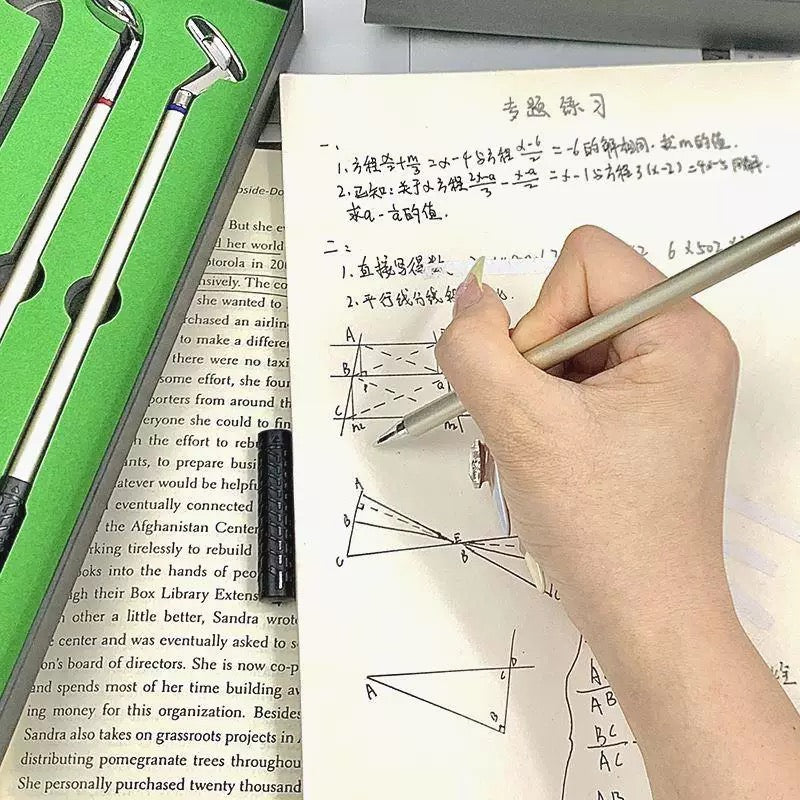 专题练习
一、
1. 方程 x/2 + m/3 = x-4 与方程 (x-6)/2 = -6 的解相同. 求m的值.
2. 已知: 关于x方程 (2x-a)/3 - (x-a)/2 = x-1 与方程 3(x-2) = 4x-5 同解.
求a - 1/a 的值.
二:
1. 直接写得数 6 × 502
2. 平行线分线
A
B
P
Q
C
m
n
A
B
C
E
B
A
C
D
B
A
AB
BC
AC
AB
side-Do
But she e
her world
otorola in 20
nsively. The co
she wanted to
rchased an airlin
to make a differe
there were no taxi
some effort, she foun
porters from around th
eryone she could to fin
h the effort to reb
nts, to prepare busi
atever would be helpfu
eventually connected
the Afghanistan Center
rking tirelessly to rebuild
oks into the hands of peo
gh their Box Library Extens
other a little better, Sandra wrote
center and was eventually asked to s
on's board of directors. She is now co-p
and spends most of her time building aw
ing money for this organization. Besides
Sandra also takes on grassroots projects in A
distributing pomegranate trees throughou
She personally purchased twenty thousand